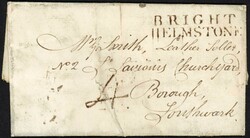 BRIGHT
HELMSTONE
Leather Seller
No 2 St Saviours Churchyard
Borough
Southwark